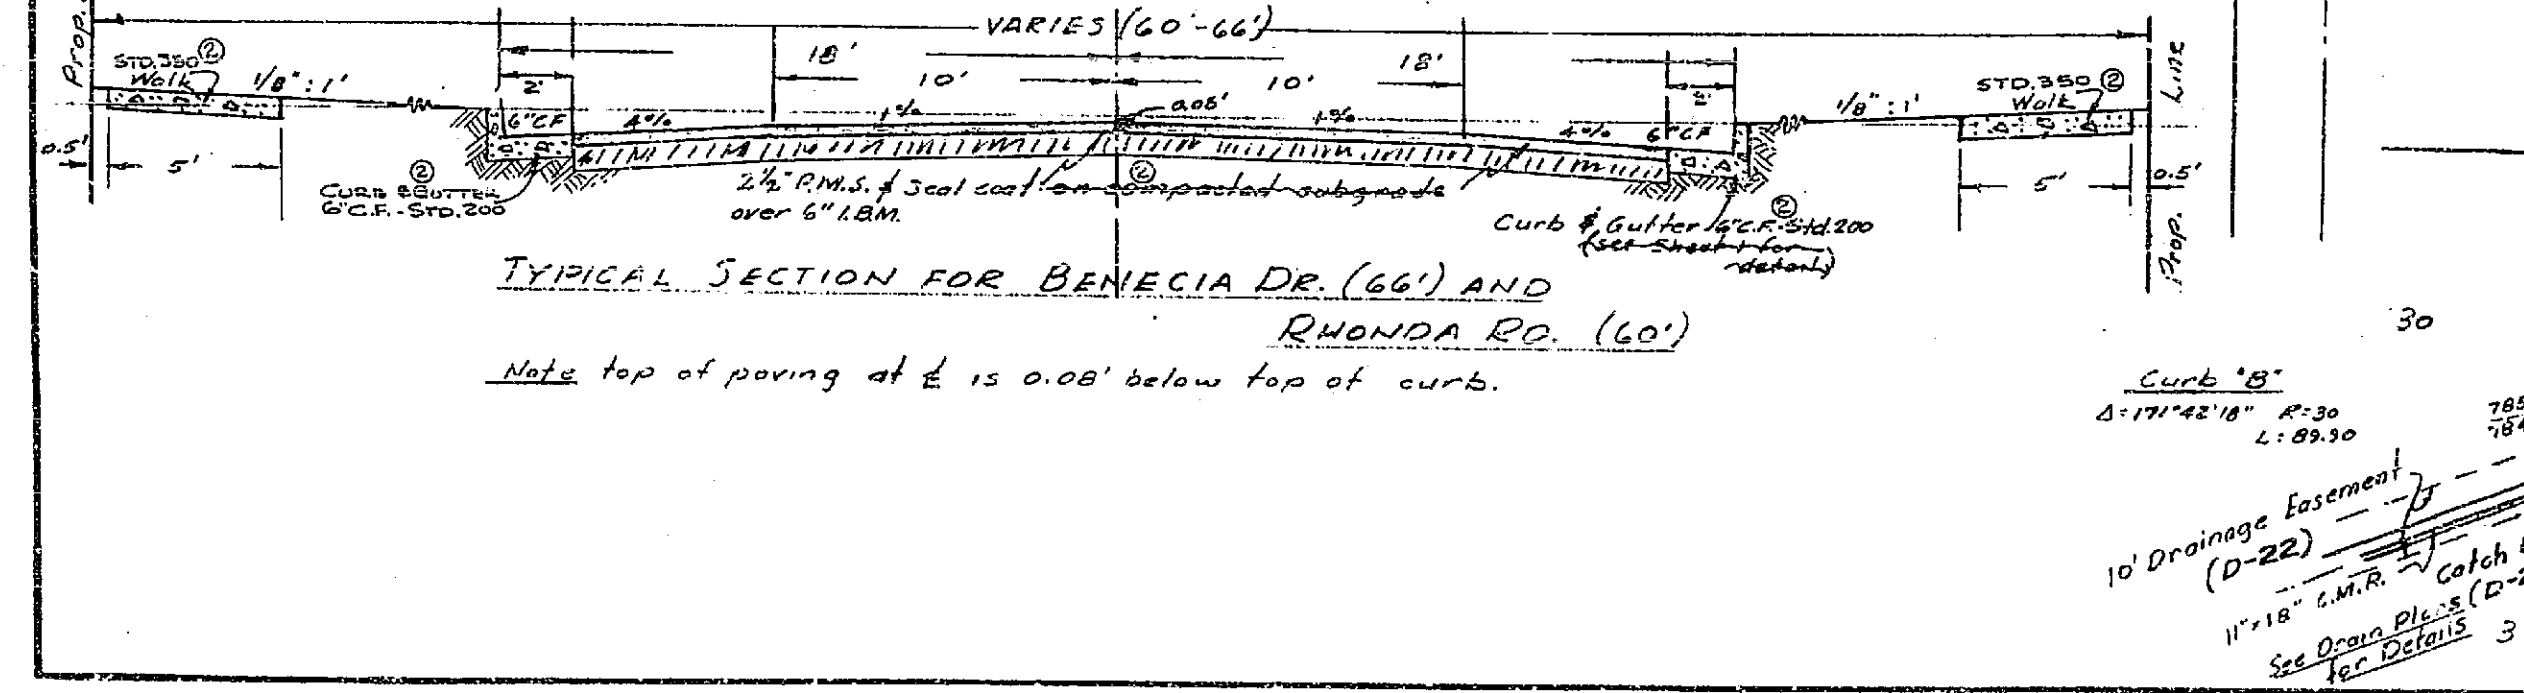 VARIES (60'-66')
Prop.
STD. 350 ②
Walk
1/8" : 1'
2'
18'
10'
10'
18'
2'
1/8" : 1'
STD. 350 ②
Walk
Line
6" CF
4%
1%
0.08'
1%
4%
6" CF
0.5'
5'
②
CURB & GUTTER
6" C.F. - STD. 200
2½" P.M.S. & Seal coat on compacted subgrade
②
over 6" I.B.M.
②
Curb & Gutter 6" C.F. - Std. 200
(see Sheet 1 for
details)
5'
0.5'
Prop.
TYPICAL SECTION FOR BENECIA DR. (66') AND
RHONDA RD. (60')
Note top of paving at ℄ is 0.08' below top of curb.
30
Curb "B"
Δ=171°42'18" R=30
L=89.90
785
784
10' Drainage Easement
(D-22)
11"x18" C.M.P.
Catch
See Drain Plans (D-2
for Details
3